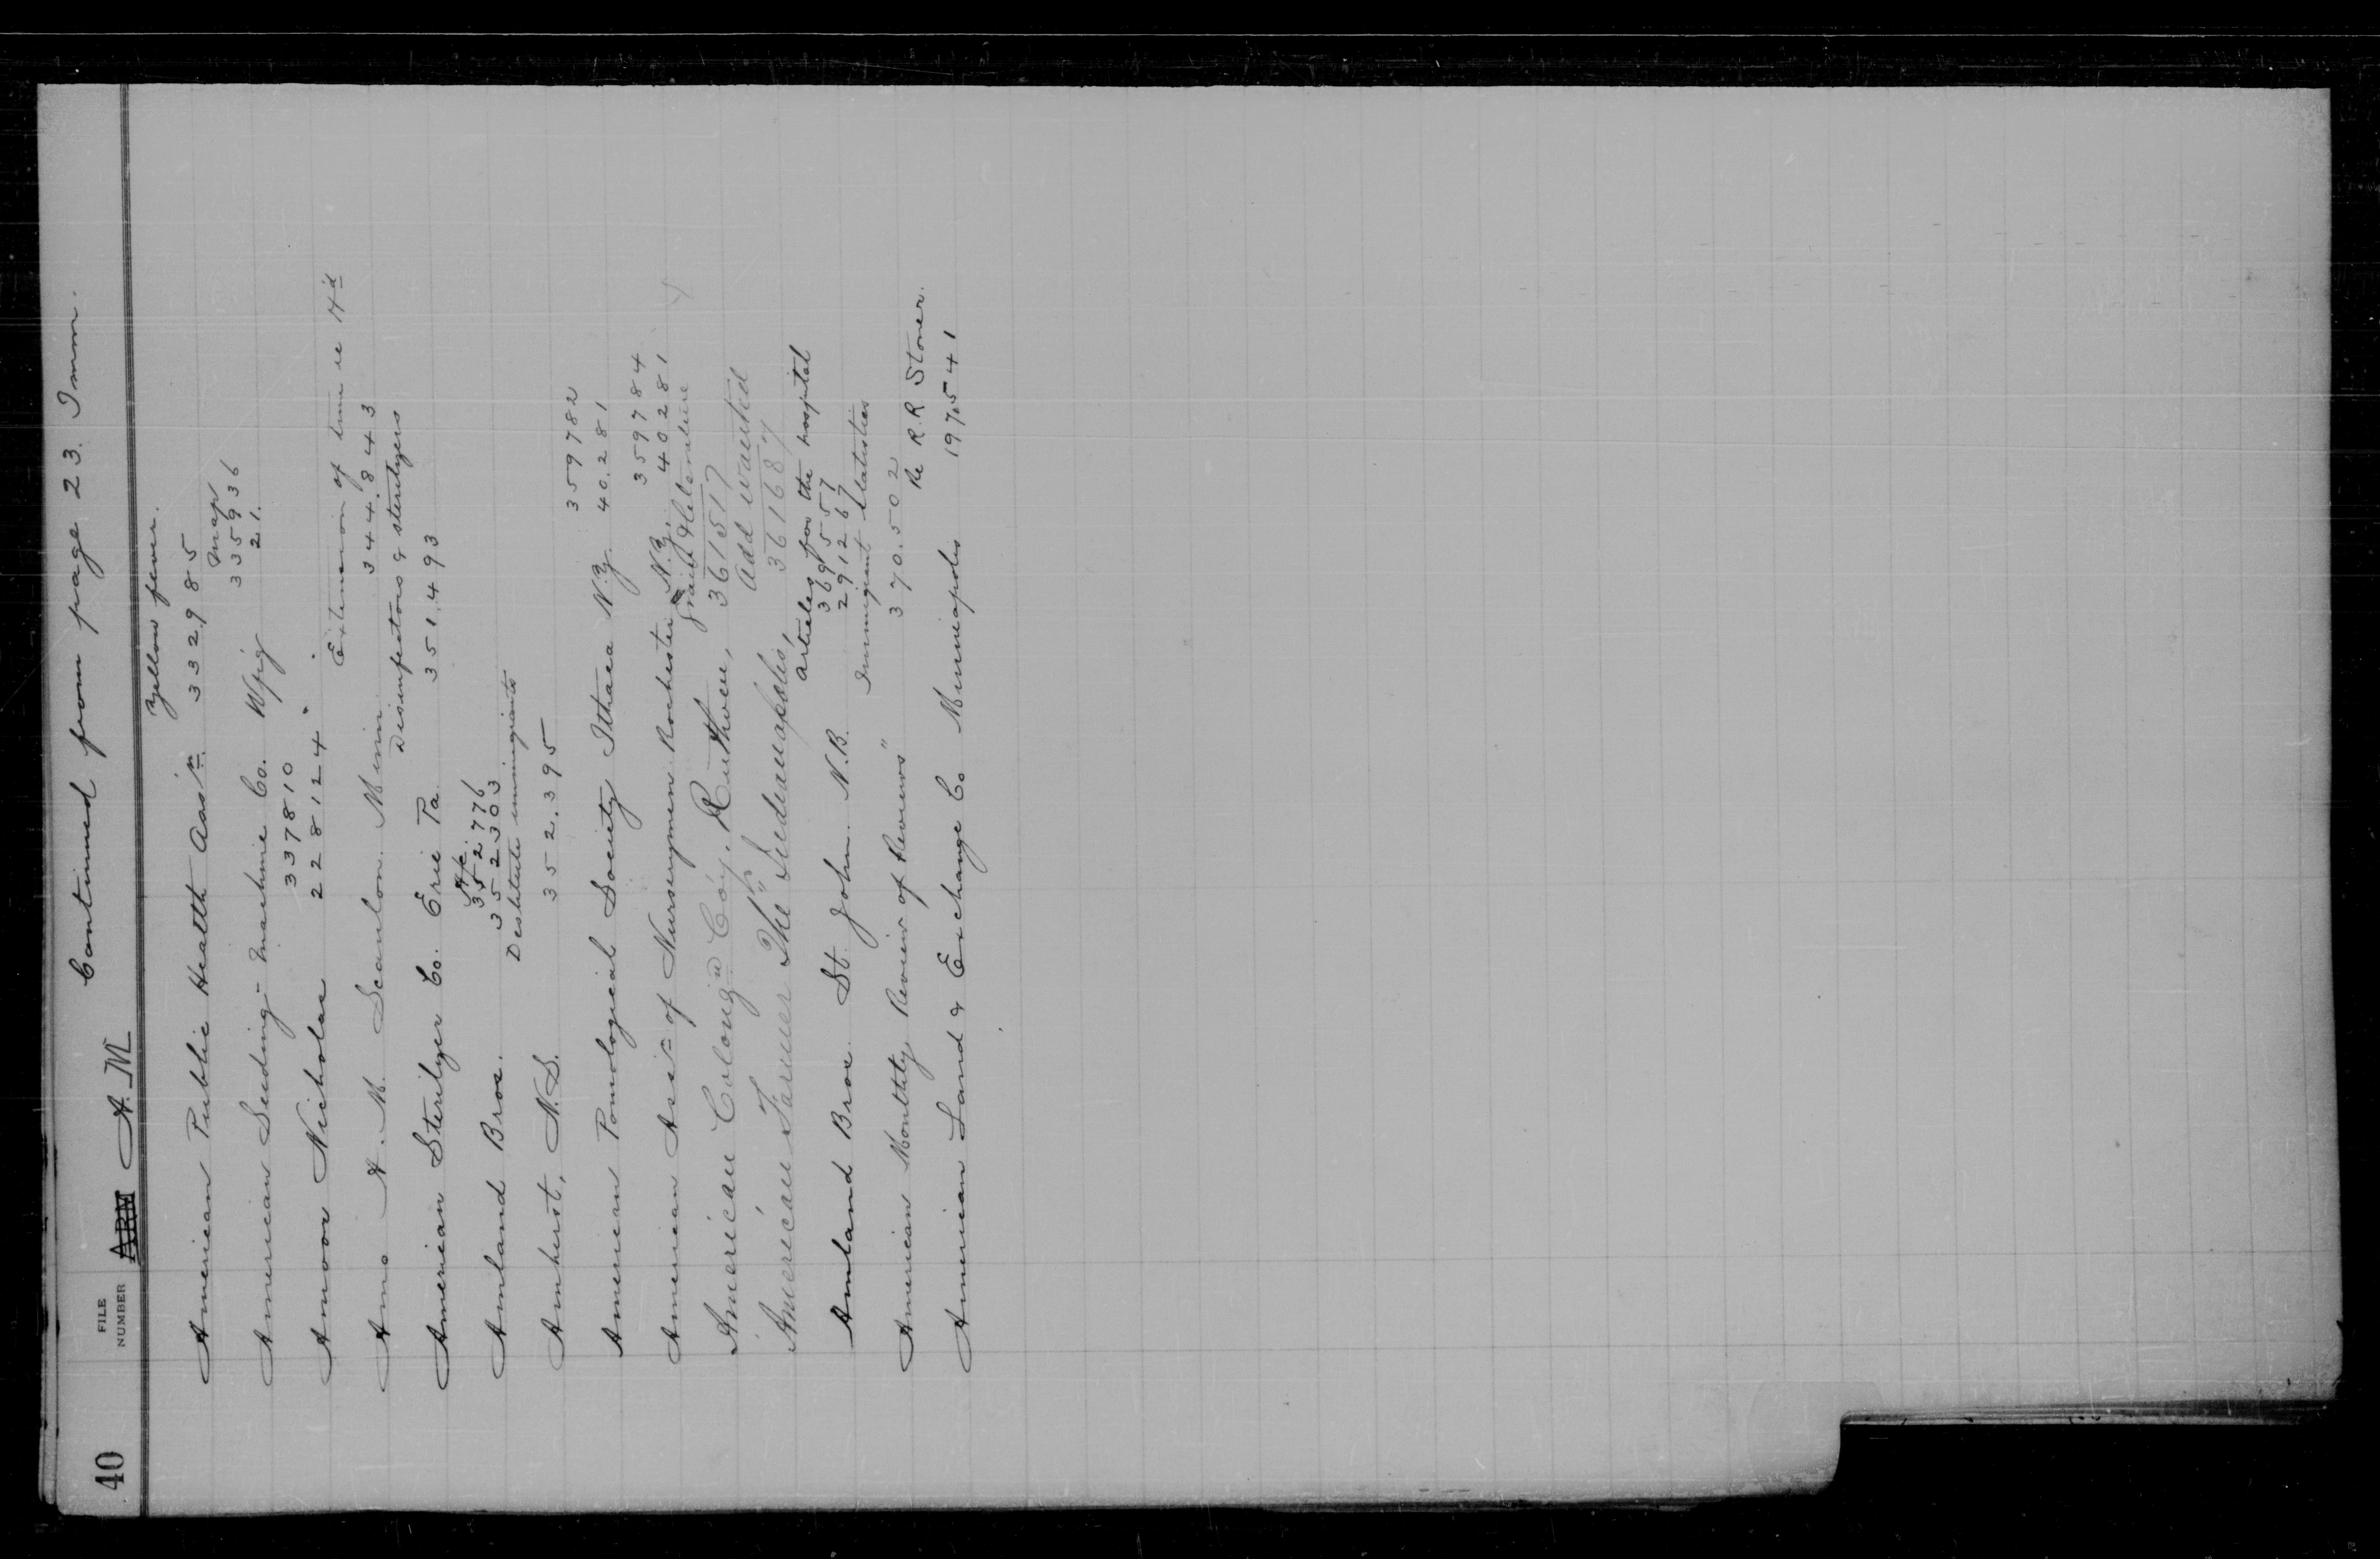 40 FILE NUMBER ARM A. M Continued from page 23. Imm.
Yellow fever.
American Public Health Assn. 332985
Map
American Seeding-Machine Co. Wpg 335936
21.
337810
Amoos Nicholas 228124
Extension of time re Hd
Ams A. M. Scanlon. Minn. 344.8443
Disinfectors & sterilyers
American Sterilyer Co. Erie Pa. 351.493
A/c.
352776
Amland Bros. 352303
Destitute immigrants
Amherst, N.S. 352.395
359782
American Pomological Society Ithaca N.Y. 40.281
359784
American Assn of Nurserymen Rochester N.Y. 40281
Grant & literature
American Colongn Coy. Ruthven, 361517
Add wanted
American Farmer The "Indianapolis, 361687
Articles for the hospital
369557
Amland Bros. St. John. N.B. 291267
Immigrant statistics
American Monthly Review of Reviews" 370.502
Re R.R. Stoner.
American Land & Exchange Co Minneapolis 197541